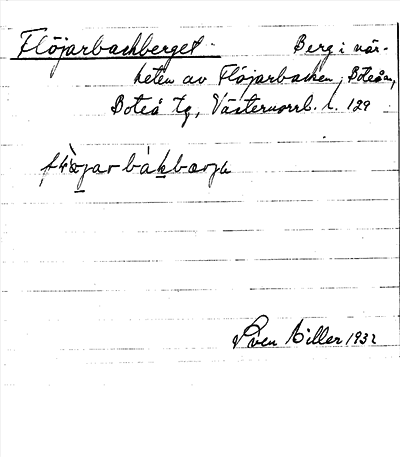 Flöjarbackberget. Berg i när-
heten av Flöjarbacken, Boteå sn,
Boteå tg, Västernorrl. l. 129
Sven Biller 1932